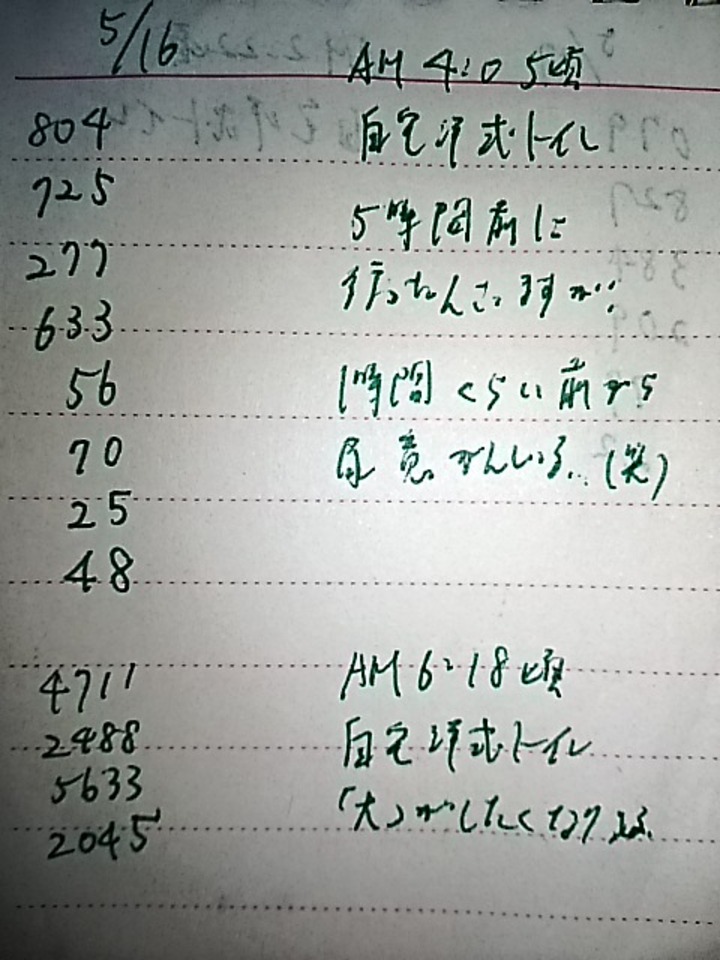 5/16
AM 4:05頃
804 自宅洋式トイレ
725
5時間前に
277
行ったんですが、
633
56 1時間くらい前から
70 尿意がんいる。(笑)
25
48
4711 AM 6:18頃
2488 自宅洋式トイレ
5633
「大」がしたくなり
2045